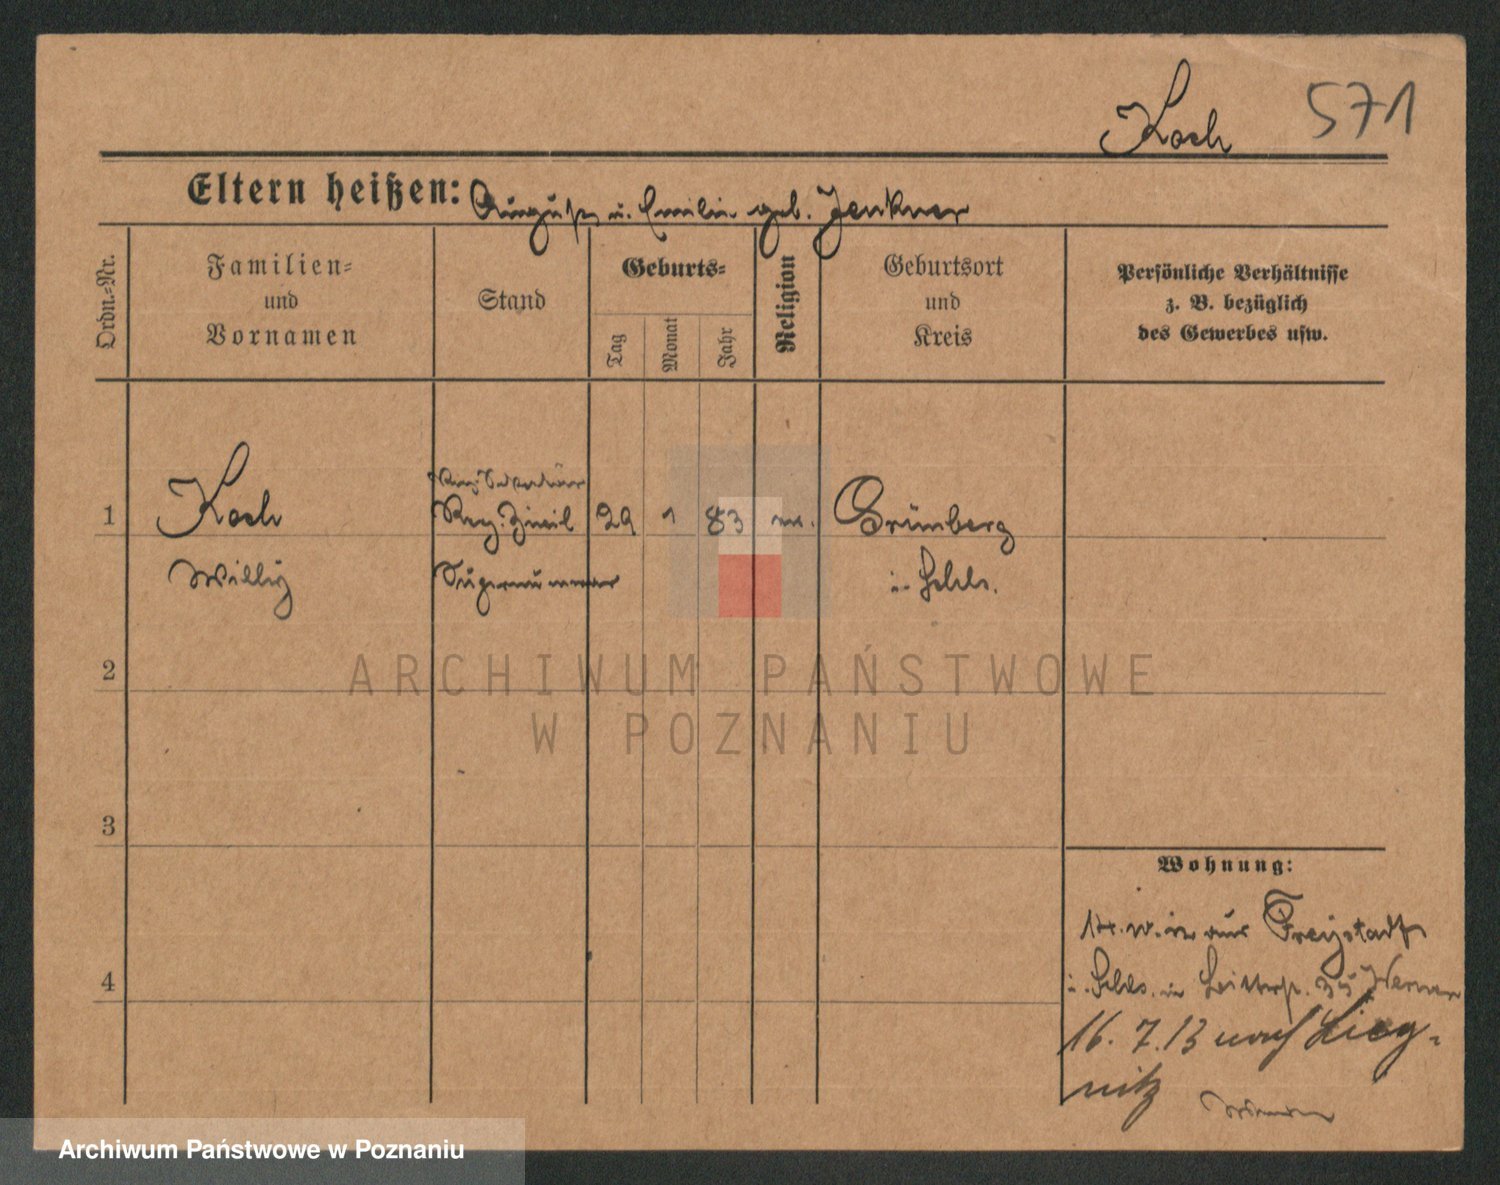 Koch 571
Eltern heißen: August u. Emilie geb. Jenkner
Ordn.-Nr.
Familien-
und
Vornamen
Stand
Geburts-
Tag
Monat
Jahr
Religion
Geburtsort
und
Kreis
Persönliche Verhältnisse
z. B. bezüglich
des Gewerbes usw.
Reg. Sekretär
1 Koch Reg. Zivil 29 1 83 ev. Grünberg
Willy Supernumerar i. Schles.
2
3
4
Wohnung:
aus Freystadt
i. Schles. in
16. 7. 13 nach Lieg-
nitz
ARCHIWUM PAŃSTWOWE
W POZNANIU
Archiwum Państwowe w Poznaniu